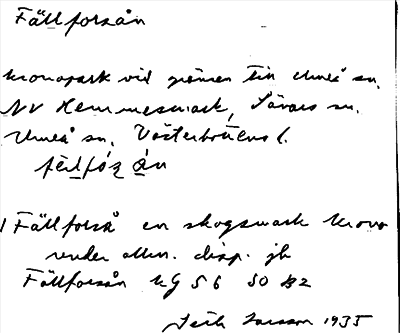 Fällforsån
kronopark vid gränsen till Umeå sn.
NV Hemmesmark, Sävars sn.
Umeå sn. Västerbottens l.
1 Fällforså en skogsmark krono
under allm. disp. jb
Fällforsån kG 56 50 B2
Larsson 1935